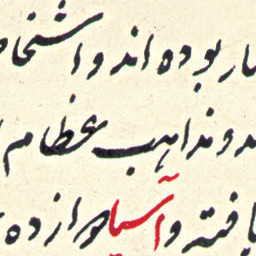 بوده اند و اشخا
و مذاهب عظام
یافته و آسیا و از ده